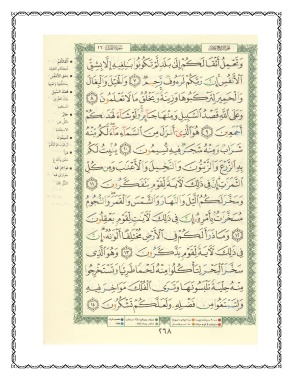 وَتَحْمِلُ أَثْقَالَكُمْ إِلَىٰ بَلَدٍ لَّمْ تَكُونُوا۟ بَـٰلِغِيهِ إِلَّا بِشِقِّ
ٱلْأَنفُسِ إِنَّ رَبَّكُمْ لَرَءُوفٌ رَّحِيمٌ ٧ وَٱلْخَيْلَ وَٱلْبِغَالَ
وَٱلْحَمِيرَ لِتَرْكَبُوهَا وَزِينَةً وَيَخْلُقُ مَا لَا تَعْلَمُونَ ٨
وَعَلَى ٱللَّهِ قَصْدُ ٱلسَّبِيلِ وَمِنْهَا جَآئِرٌ وَلَوْ شَآءَ لَهَدَىٰكُمْ
أَجْمَعِينَ ٩ هُوَ ٱلَّذِىٓ أَنزَلَ مِنَ ٱلسَّمَآءِ مَآءً لَّكُم مِّنْهُ
شَرَابٌ وَمِنْهُ شَجَرٌ فِيهِ تُسِيمُونَ ١٠ يُنۢبِتُ لَكُم
بِهِ ٱلزَّرْعَ وَٱلزَّيْتُونَ وَٱلنَّخِيلَ وَٱلْأَعْنَـٰبَ وَمِن كُلِّ
ٱلثَّمَرَٰتِ إِنَّ فِى ذَٰلِكَ لَـَٔايَةً لِّقَوْمٍ يَتَفَكَّرُونَ ١١
وَسَخَّرَ لَكُمُ ٱلَّيْلَ وَٱلنَّهَارَ وَٱلشَّمْسَ وَٱلْقَمَرَ وَٱلنُّجُومُ
مُسَخَّرَٰتٌۢ بِأَمْرِهِۦٓ إِنَّ فِى ذَٰلِكَ لَـَٔايَـٰتٍ لِّقَوْمٍ يَعْقِلُونَ
١٢ وَمَا ذَرَأَ لَكُمْ فِى ٱلْأَرْضِ مُخْتَلِفًا أَلْوَٰنُهُۥٓ إِنَّ
فِى ذَٰلِكَ لَـَٔايَةً لِّقَوْمٍ يَذَّكَّرُونَ ١٣ وَهُوَ ٱلَّذِى
سَخَّرَ ٱلْبَحْرَ لِتَأْكُلُوا۟ مِنْهُ لَحْمًا طَرِيًّا وَتَسْتَخْرِجُوا۟
مِنْهُ حِلْيَةً تَلْبَسُونَهَا وَتَرَى ٱلْفُلْكَ مَوَاخِرَ فِيهِ
وَلِتَبْتَغُوا۟ مِن فَضْلِهِۦ وَلَعَلَّكُمْ تَشْكُرُونَ ١٤
٢٦٨